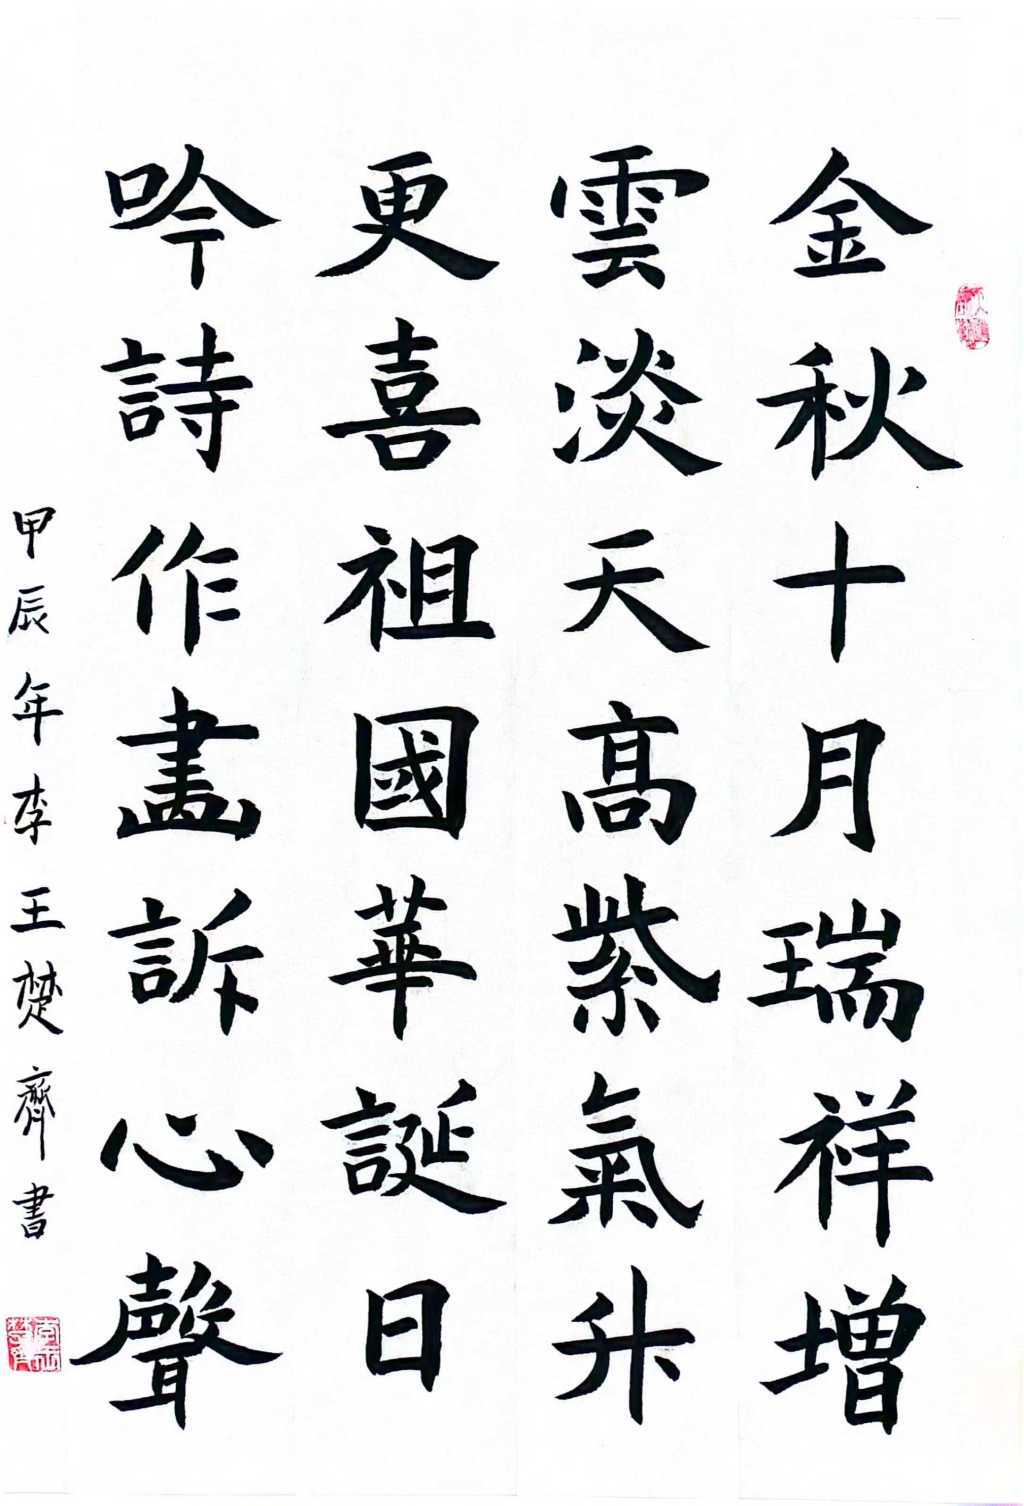 金秋十月瑞祥增
雲淡天高紫氣升
更喜祖國華誕日
吟詩作畫訴心聲
甲辰年李王楚齊書